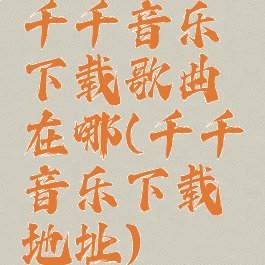 千千音乐
下载歌曲
在哪(千千
音乐下载
地址)